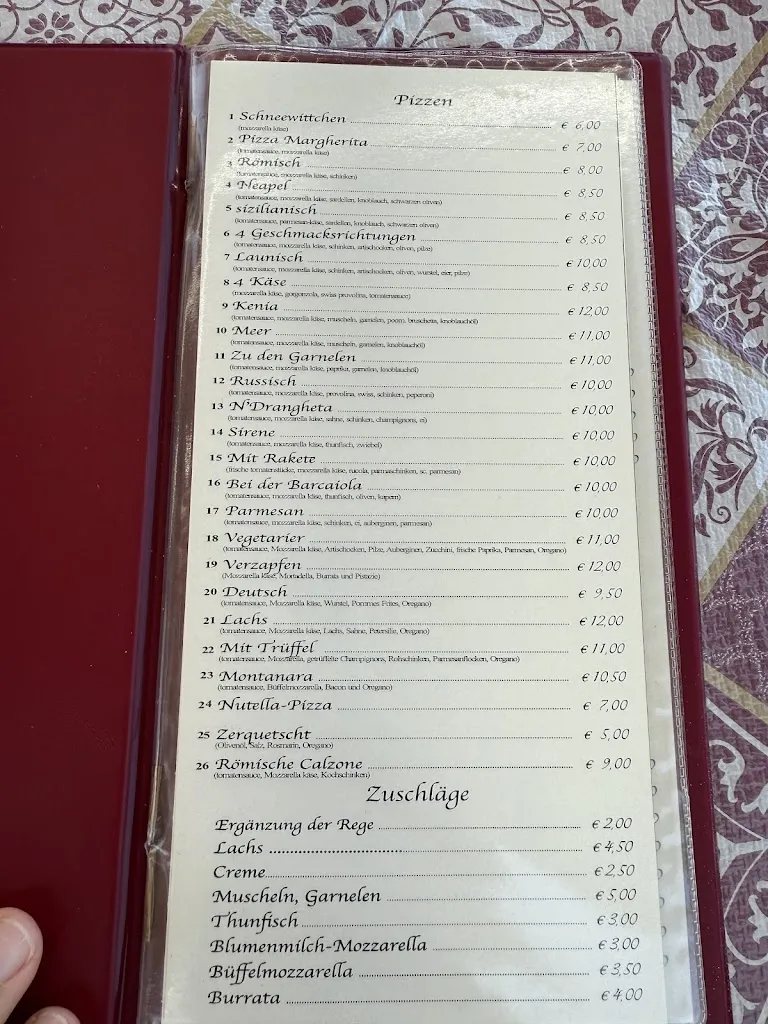 Pizzen
1 Schneewittchen € 6,00
(mozzarella käse)
2 Pizza Margherita € 7,00
(tomatensauce, mozzarella käse)
3 Römisch € 8,00
(tomatensauce, mozzarella käse, schinken)
4 Neapel € 8,50
(tomatensauce, mozzarella käse, sardellen, knoblauch, schwarzen oliven)
5 sizilianisch € 8,50
(tomatensauce, parmesan-käse, sardellen, knoblauch, schwarzen oliven)
6 4 Geschmacksrichtungen € 8,50
(tomatensauce, mozzarella käse, schinken, artischocken, oliven, pilze)
7 Launisch € 10,00
(tomatensauce, mozzarella käse, schinken, artischocken, oliven, wurstel, eier, pilze)
8 4 Käse € 8,50
(mozzarella käse, gorgonzola, swiss provolina, tomatensauce)
9 Kenia € 12,00
(tomatensauce, mozzarella käse, muscheln, garnelen, poem, bruschetta, knoblauchöl)
10 Meer € 11,00
(tomatensauce, mozzarella käse, muscheln, garnelen, knoblauchöl)
11 Zu den Garnelen € 11,00
(tomatensauce, mozzarella käse, paprika, garnelen, knoblauchöl)
12 Russisch € 10,00
(tomatensauce, mozzarella käse, provolina, swiss, schinken, peperoni)
13 N'Drangheta € 10,00
(tomatensauce, mozzarella käse, sahne, schinken, champignons, ei)
14 Sirene € 10,00
(tomatensauce, mozzarella käse, thunfisch, zwiebel)
15 Mit Rakete € 10,00
(frische tomatenstücke, mozzarella käse, rucola, parmaschinken, sc. parmesan)
16 Bei der Barcaiola € 10,00
(tomatensauce, mozzarella käse, thunfisch, oliven, kapern)
17 Parmesan € 10,00
(tomatensauce, mozzarella käse, schinken, ei, auberginen, parmesan)
18 Vegetarier € 11,00
(tomatensauce, Mozzarella käse, Artischocken, Pilze, Auberginen, Zucchini, frische Paprika, Parmesan, Oregano)
19 Verzapfen € 12,00
(Mozzarella Käse, Mortadella, Burrata und Pistazie)
20 Deutsch € 9,50
(tomatensauce, Mozzarella käse, Wurstel, Pommes Frites, Oregano)
21 Lachs € 12,00
(tomatensauce, Mozzarella käse, Lachs, Sahne, Petersilie, Oregano)
22 Mit Trüffel € 11,00
(tomatensauce, Mozzarella, getrüffelte Champignons, Rohschinken, Parmesanflocken, Oregano)
23 Montanara € 10,50
(tomatensauce, Büffelmozzarella, Bacon und Oregano)
24 Nutella-Pizza € 7,00
25 Zerquetscht € 5,00
(Olivenöl, Salz, Rosmarin, Oregano)
26 Römische Calzone € 9,00
(tomatensauce, Mozzarella käse, Kochschinken)
Zuschläge
Ergänzung der Rege € 2,00
Lachs € 4,50
Creme € 2,50
Muscheln, Garnelen € 5,00
Thunfisch € 3,00
Blumenmilch-Mozzarella € 3,00
Büffelmozzarella € 3,50
Burrata € 4,00